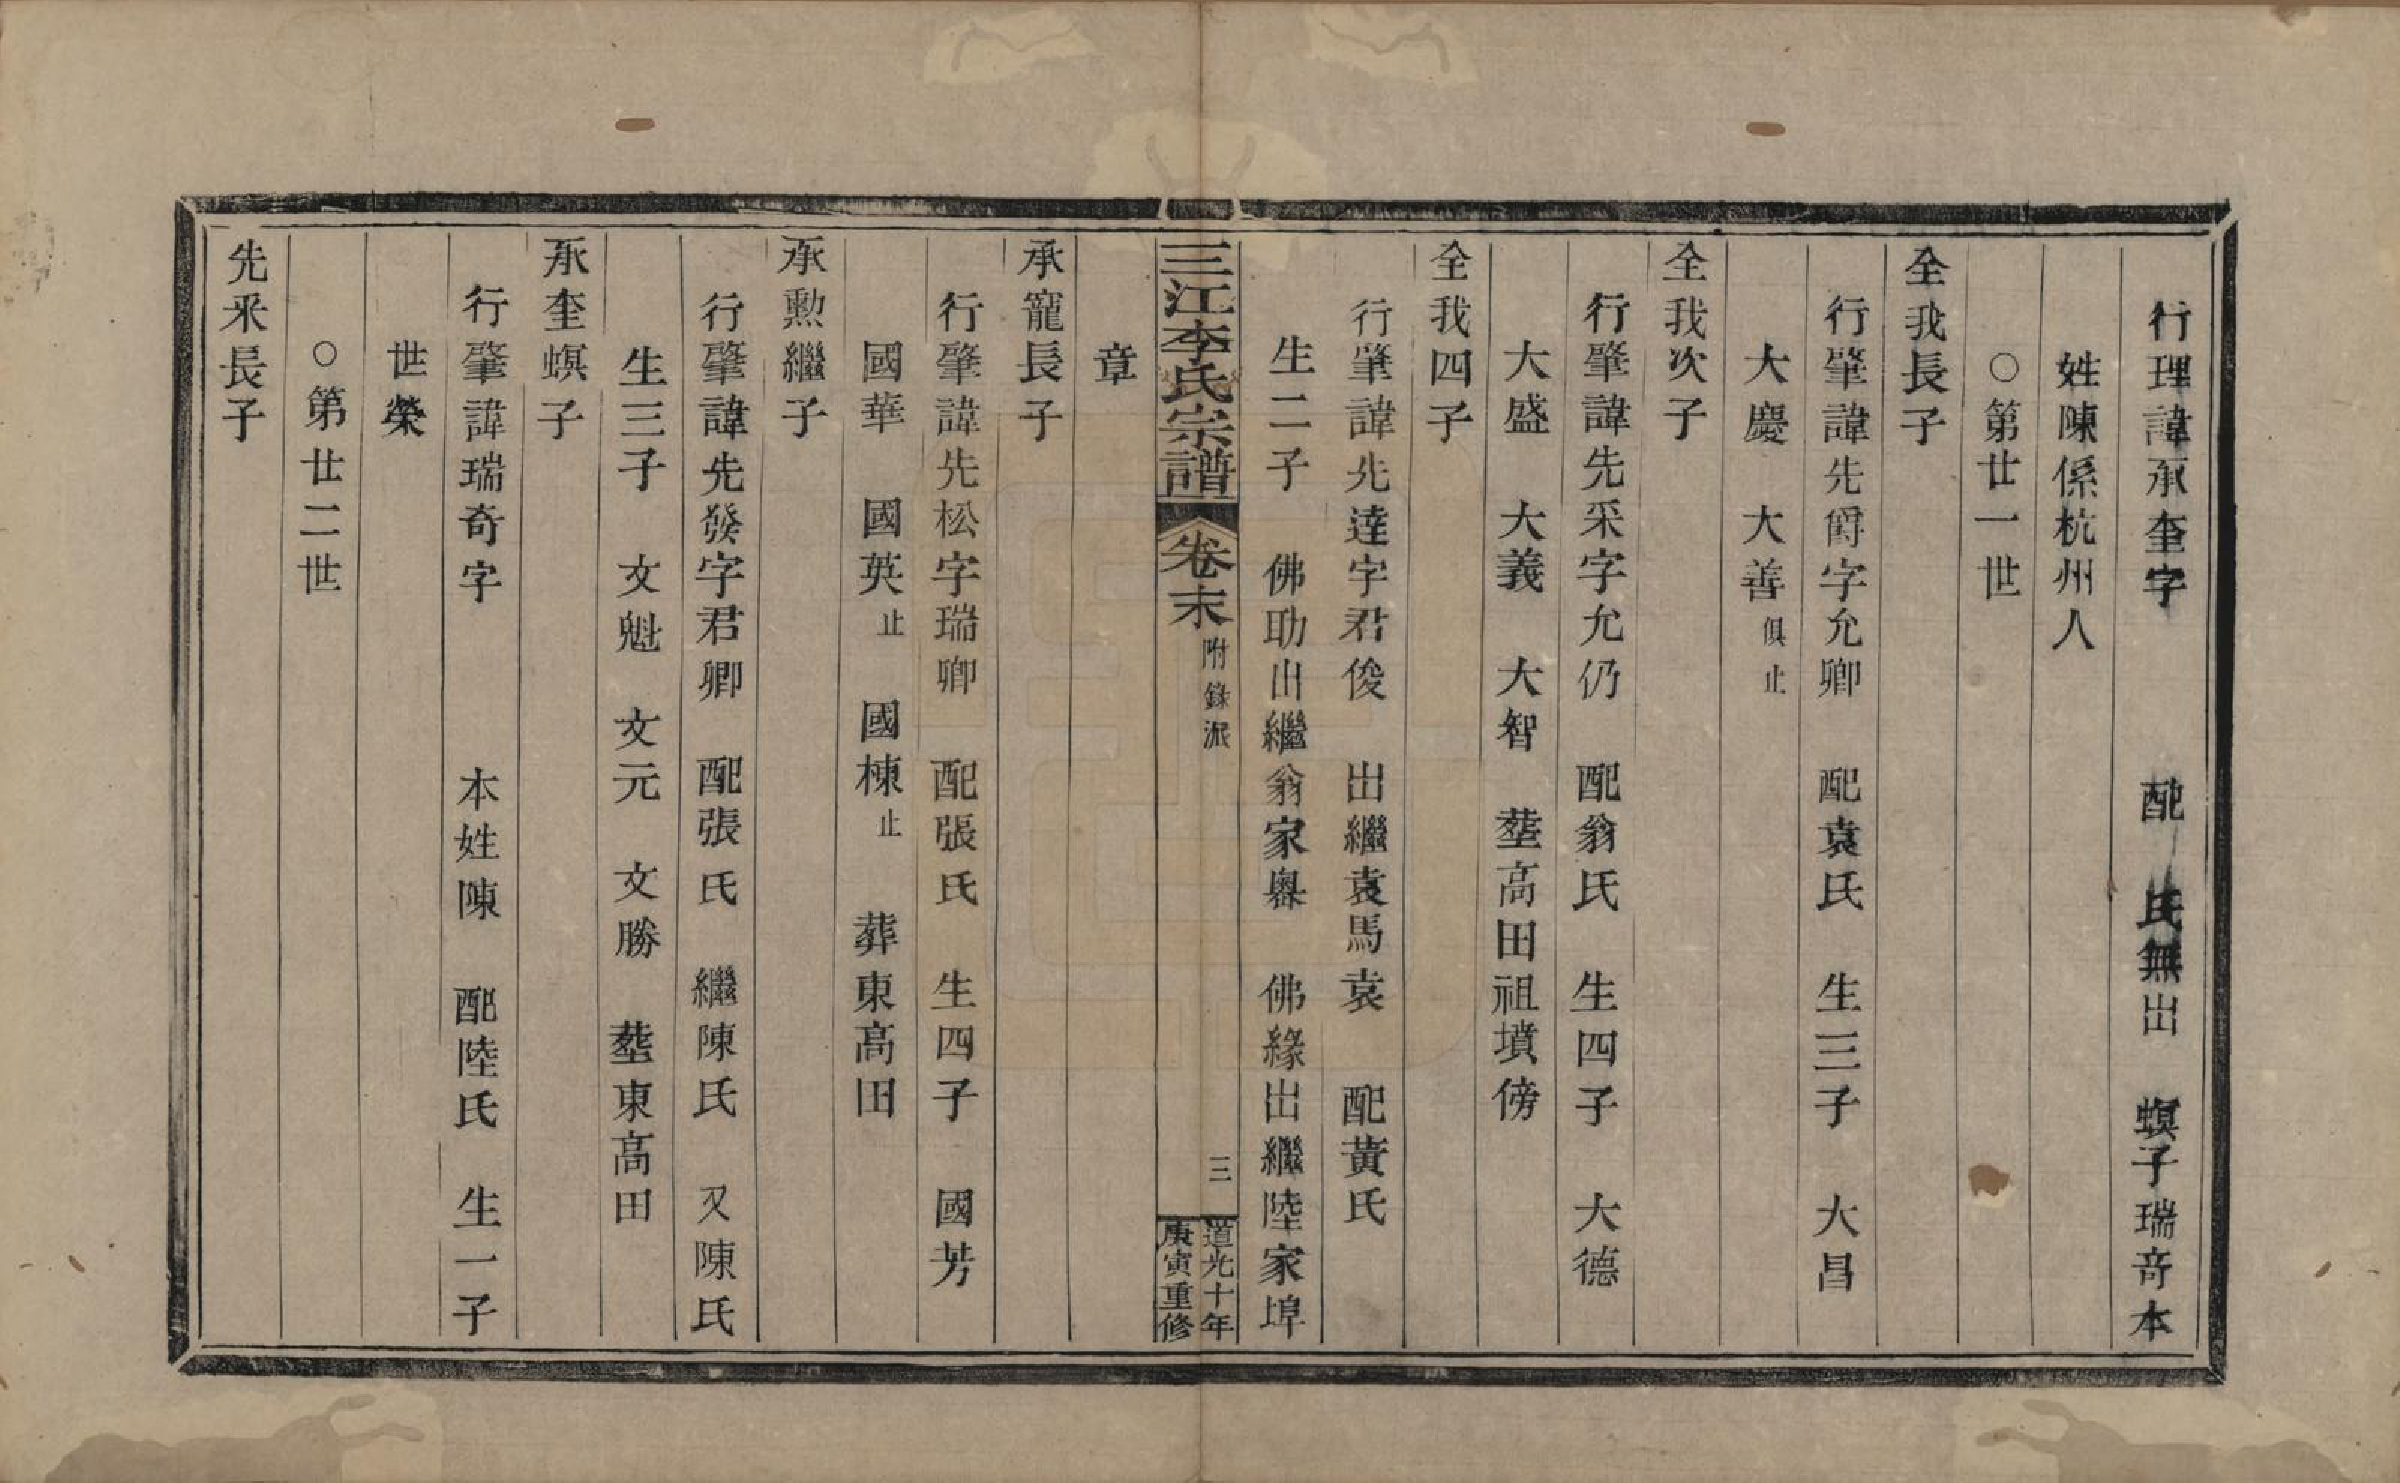 行理諱承奎字　配　氏無出　螟子瑞竒本
姓陳係杭州人
○第廿一世
全我長子
行肇諱先爵字允卿　配袁氏　生三子　大昌
大慶　大善俱止
全我次子
行肇諱先采字允仍　配翁氏　生四子　大德
大盛　大義　大智　塟高田祖墳傍
全我四子
行肇諱先逹字君俊　出繼袁馬袁　配黃氏
生二子　佛助出繼翁家㠘　佛緣出繼陸家埠
三江李氏宗譜　卷末　附錄派　三　道光十年庚寅重修
章
承寵長子
行肇諱先松字瑞卿　配張氏　生四子　國芳
國華　國英止　國棟止　葬東高田
承勲繼子
行肇諱先發字君卿　配張氏　繼陳氏　又陳氏
生三子　文魁　文元　文勝　塟東高田
承奎螟子
行肇諱瑞奇字　本姓陳　配陸氏　生一子
世榮
○第廿二世
先采長子